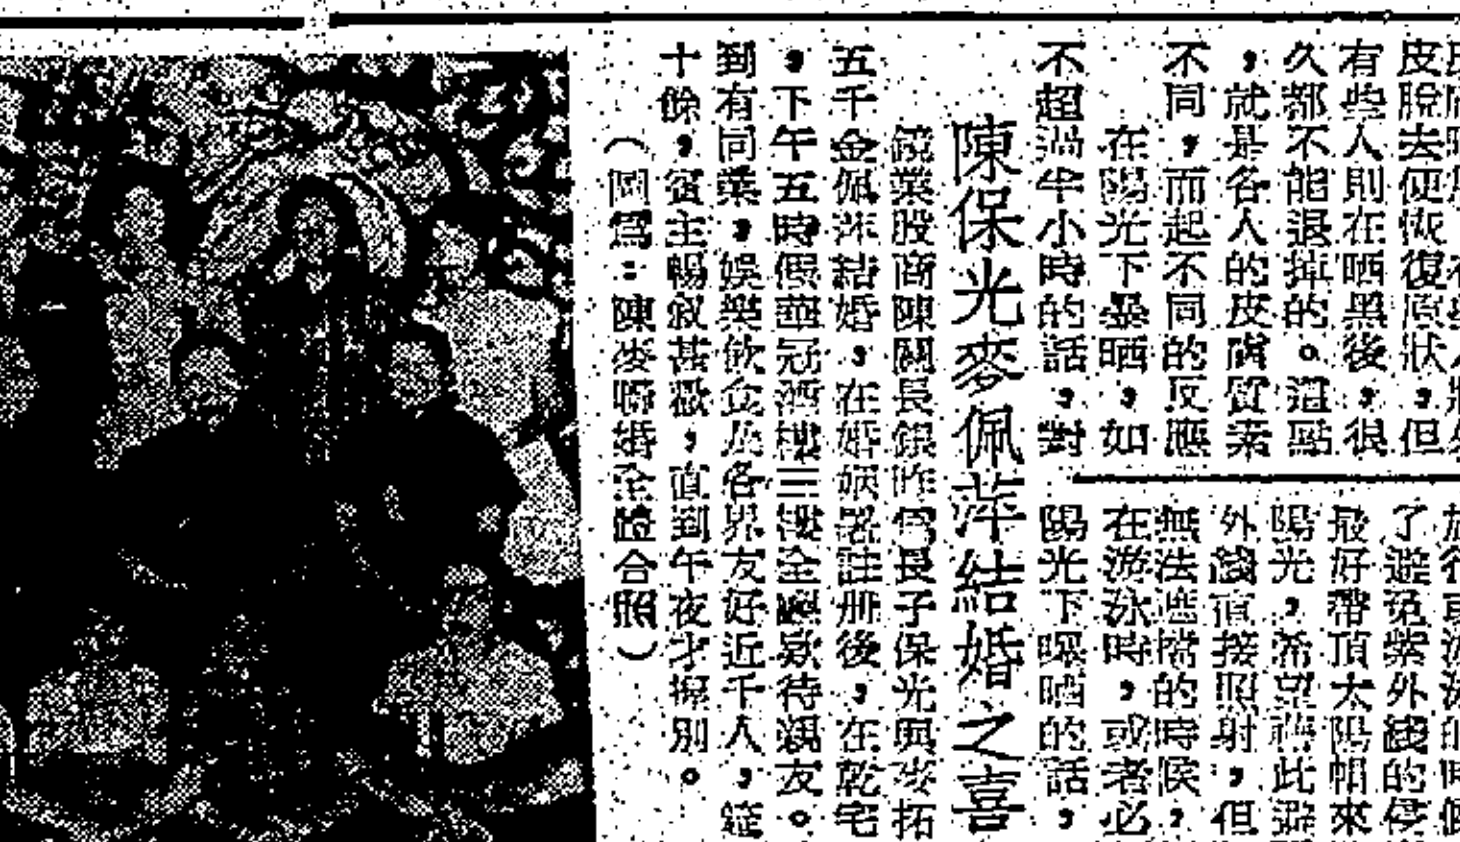 皮脫去便恢復原狀,但
有些人則在晒黑後,很
久都不能退掉的。這點
,就是各人的皮膚質素
不同,而起不同的反應
在陽光下暴晒,如
不超過半小時的話,對
了避免紫外綫的停
最好帶頂太陽帽來
陽光,希望藉此避
外綫直接照射,但
無法遮擋的時候,
在游泳時,或者必
陽光下曝晒的話,
陳保光麥佩萍結婚之喜
鏡業股商陳關長銀昨爲長子保光與麥拓
五千金佩萍結婚,在婚姻署註冊後,在乾宅
,下午五時假華冠酒樓三樓全廳欵待親友。
到有同業,娛樂飲食及各界友好近千人,筵
十餘,賓主暢叙甚歡,直到午夜才握別。
(圖爲:陳麥聯婚全證合照)